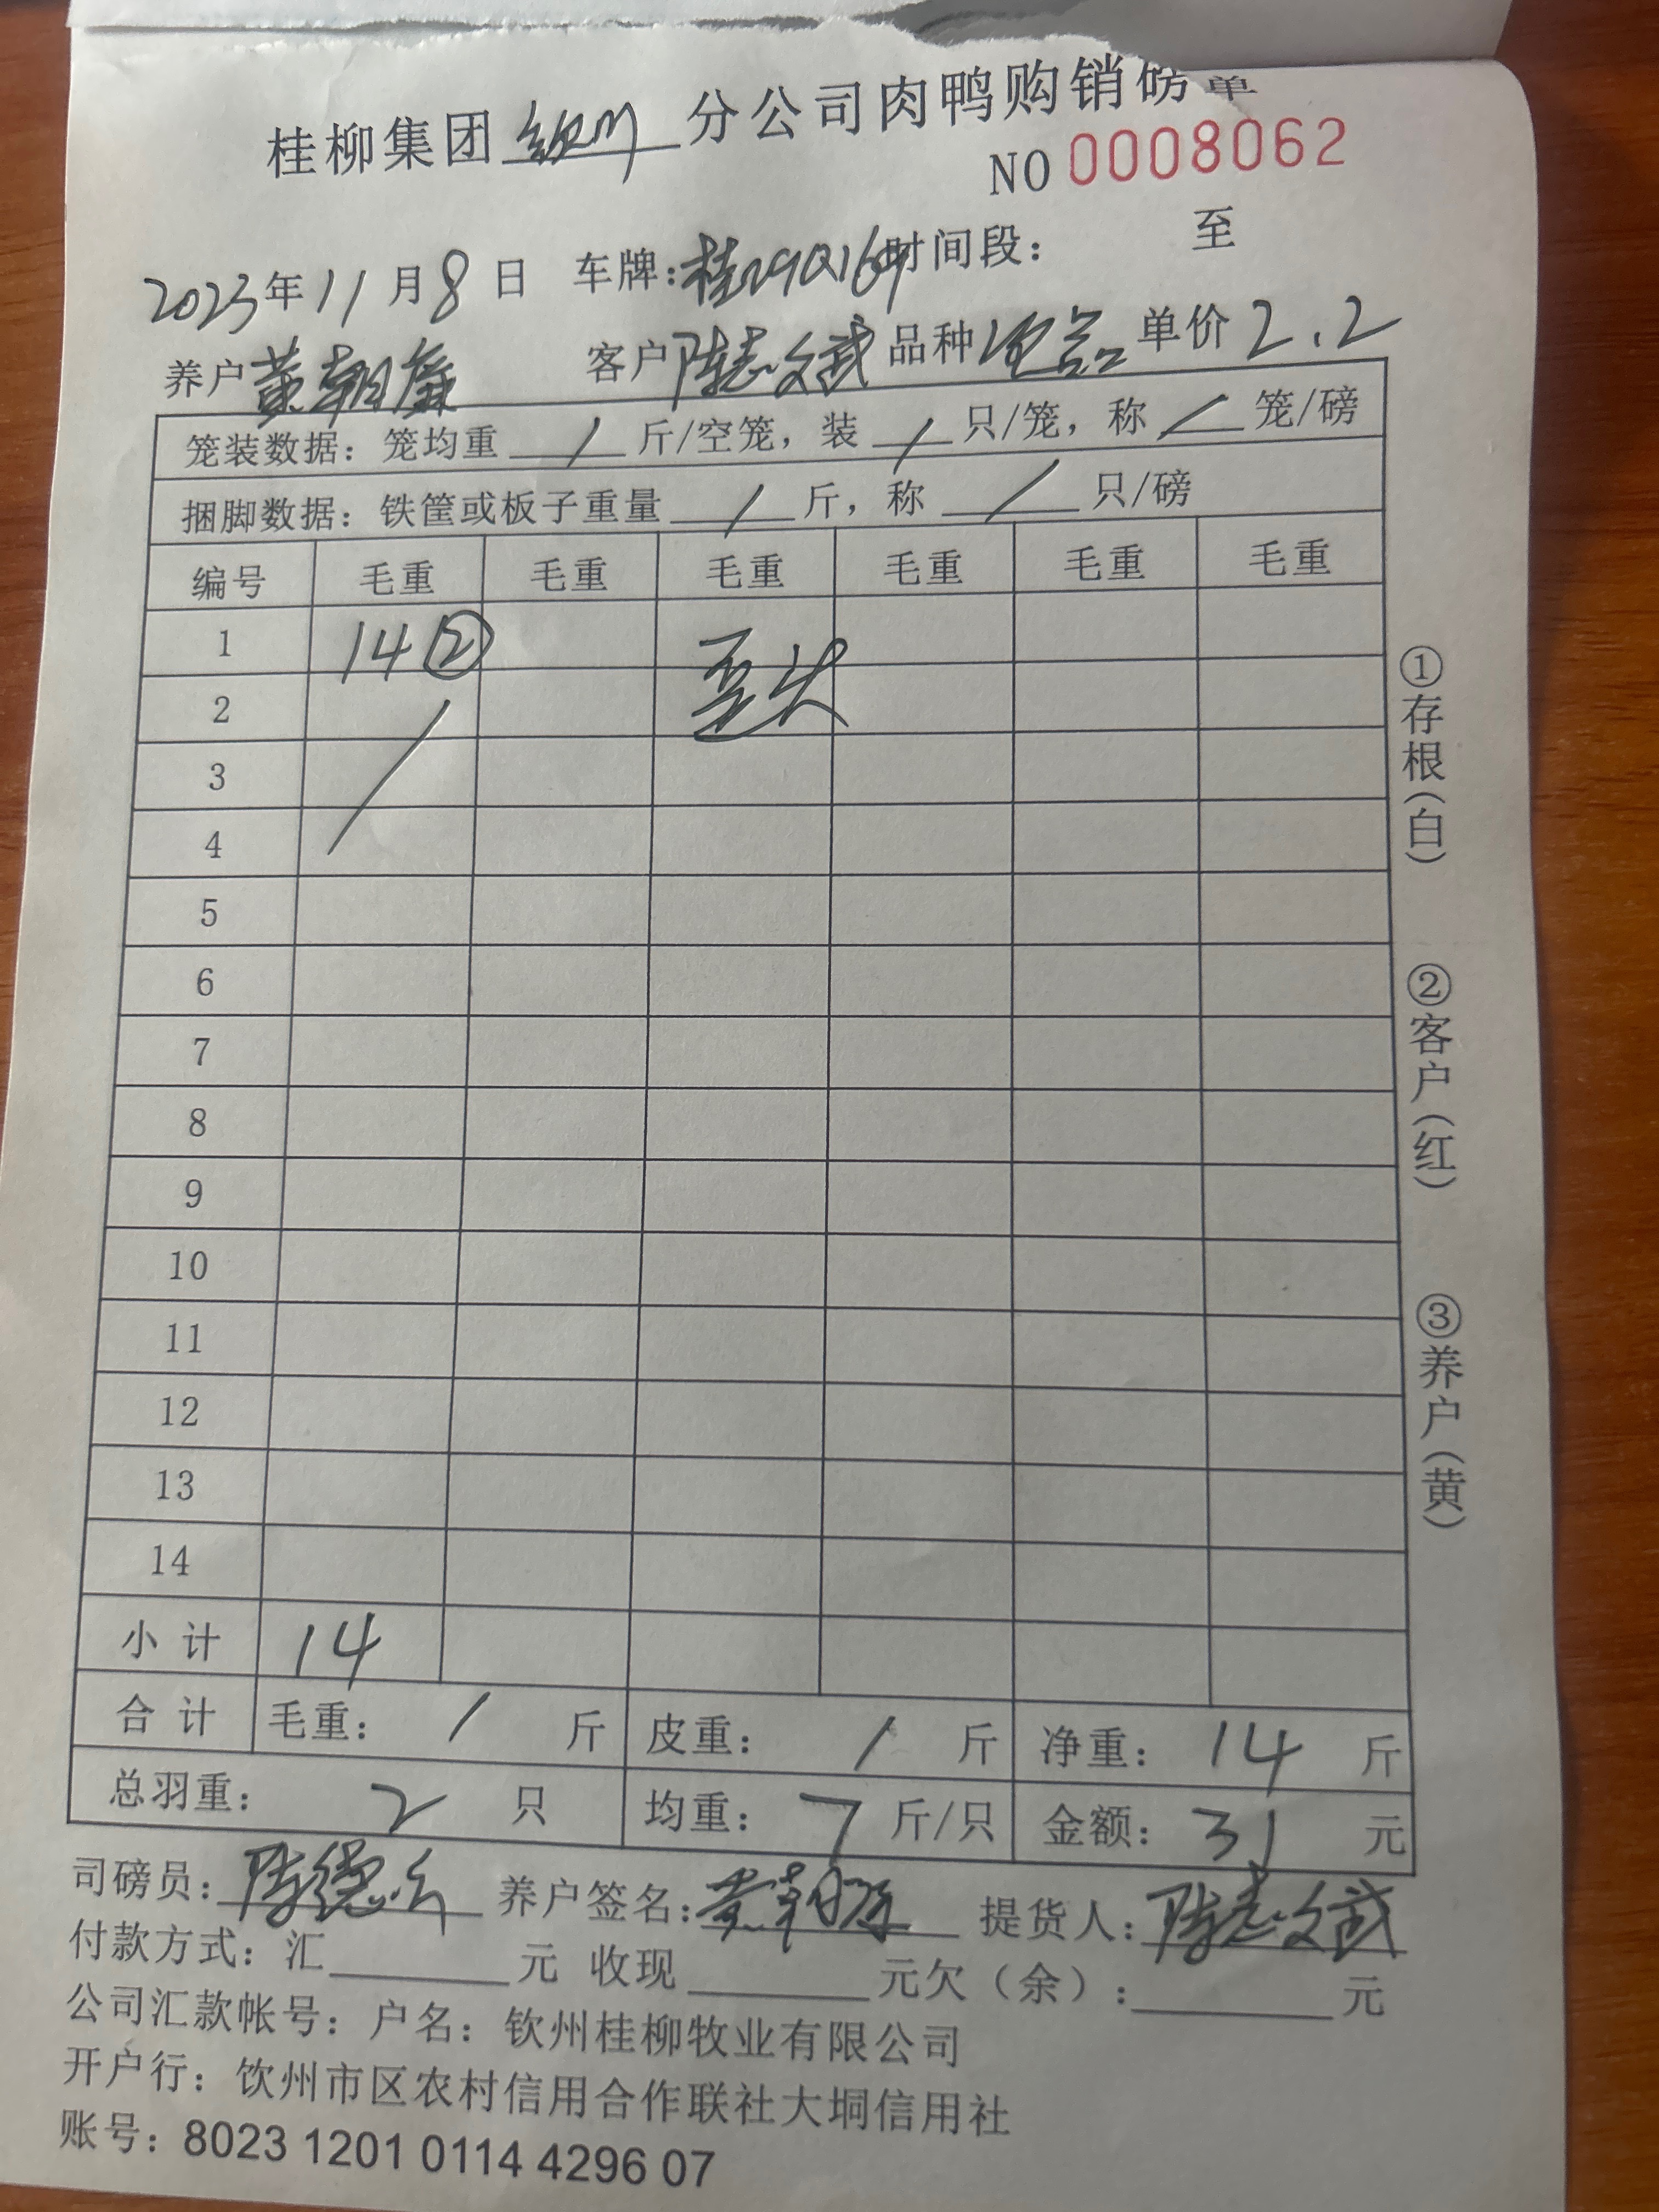 桂柳集团钦州分公司肉鸭购销磅单
NO 0008062
2023年11月8日 车牌: 时间段: 至
养户黄朝 客户陈志斌 品种 单价2.2
笼装数据: 笼均重 / 斤/空笼, 装 / 只/笼, 称 / 笼/磅
捆脚数据: 铁筐或板子重量 / 斤, 称 / 只/磅
编号 毛重 毛重 毛重 毛重 毛重 毛重
1 14 ② 歪头
2
3
4
5
6
7
8
9
10
11
12
13
14
小计 14
合计 毛重: / 斤 皮重: / 斤 净重: 14 斤
总羽重: 2 只 均重: 7 斤/只 金额: 31 元
司磅员: 陈德 养户签名: 黄朝 提货人: 陈志斌
付款方式: 汇 元 收现 元欠（余）: 元
公司汇款帐号: 户名: 钦州桂柳牧业有限公司
开户行: 饮州市区农村信用合作联社大垌信用社
账号: 8023 1201 0114 4296 07
①存根(白)
②客户(红)
③养户(黄)